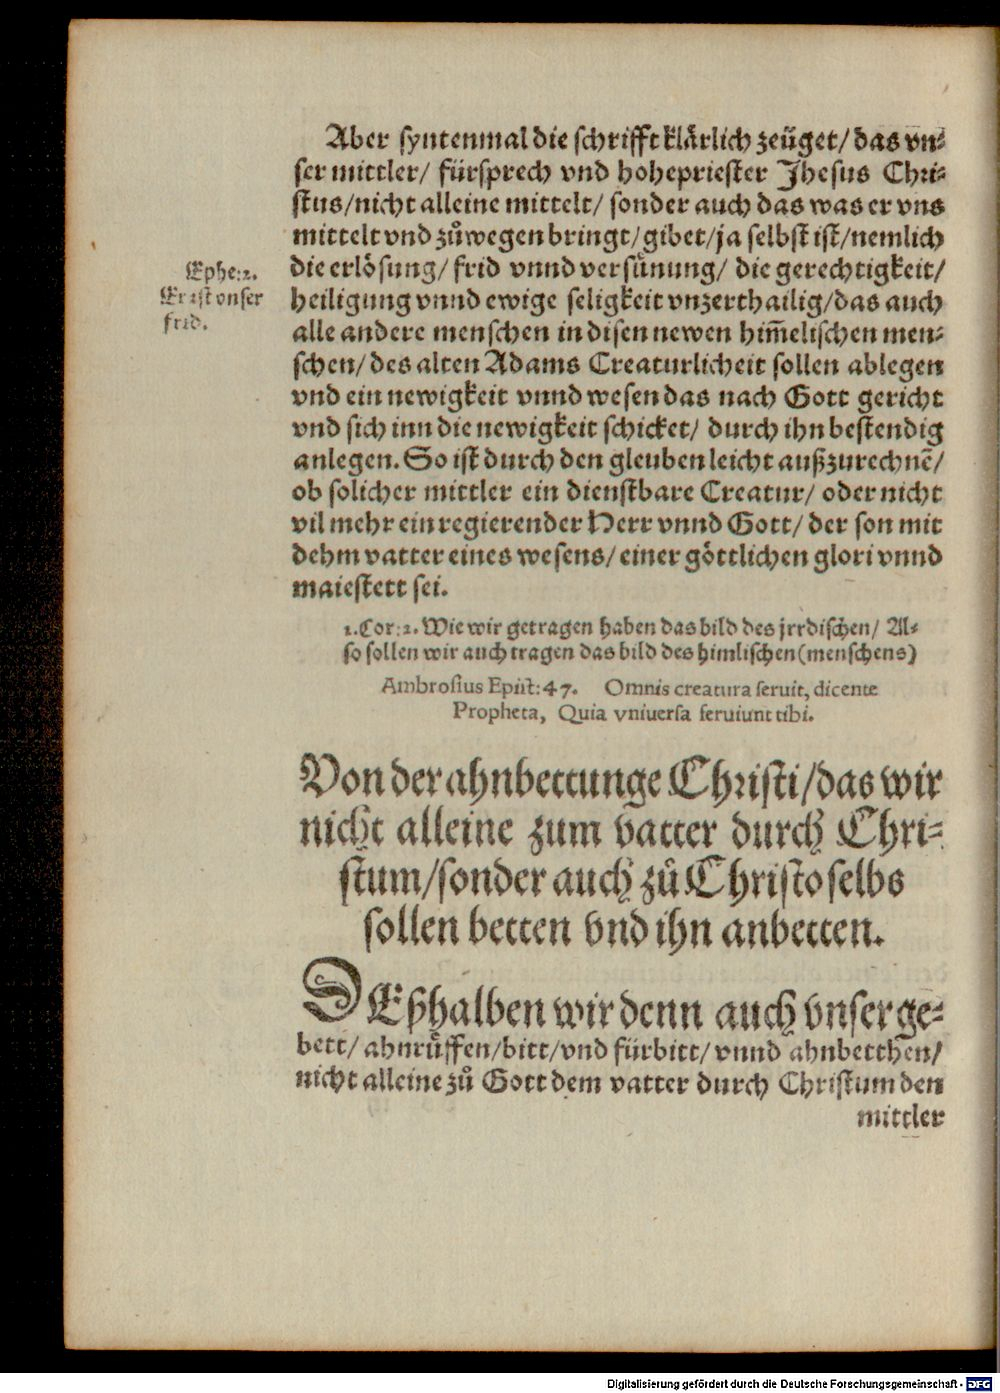 Aber syntenmal die schrifft klärlich zeüget/ das vn⸗
ser mittler/ fürsprech vnd hohepriester Jhesus Chri⸗
stus/nicht alleine mittelt/ sonder auch das was er vns
mittelt vnd zůwegen bringt/gibet/ja selbst ist/nemlich
die erlösung/ frid vnnd versünung/ die gerechtigkeit/
heiligung vnnd ewige seligkeit vnzerthailig/das auch
alle andere menschen in disen newen him̃elischen men⸗
schen/ des alten Adams Creaturlicheit sollen ablegen
vnd ein newigkeit vnnd wesen das nach Gott gericht
vnd sich inn die newigkeit schicket/ durch ihn bestendig
anlegen. So ist durch den gleuben leicht außzurechnē/
ob solicher mittler ein dienstbare Creatur/ oder nicht
vil mehr ein regierender Herr vnnd Gott/ der son mit
dehm vatter eines wesens/ einer göttlichen glori vnnd
maiestett sei.
Ephe:2.
Er ist vnser
frid.
1.Cor:2. Wie wir getragen haben das bild des jrrdischen/ Al⸗
so sollen wir auch tragen das bild des himlischen (menschens)
Ambrosius Epist:47. Omnis creatura seruit, dicente
Propheta, Quia vniuersa seruiunt tibi.
Von der ahnbettunge Christi/das wir
nicht alleine zum vatter durch Chri⸗
stum/sonder auch zů Christo selbs
sollen betten vnd ihn anbetten.
DEßhalben wir denn auch vnser ge⸗
bett/ ahnrüffen/bitt/vnd fürbitt/ vnnd ahnbetthen/
nicht alleine zů Gott dem vatter durch Christum den
mittler
Digitalisierung gefördert durch die Deutsche Forschungsgemeinschaft - DFG